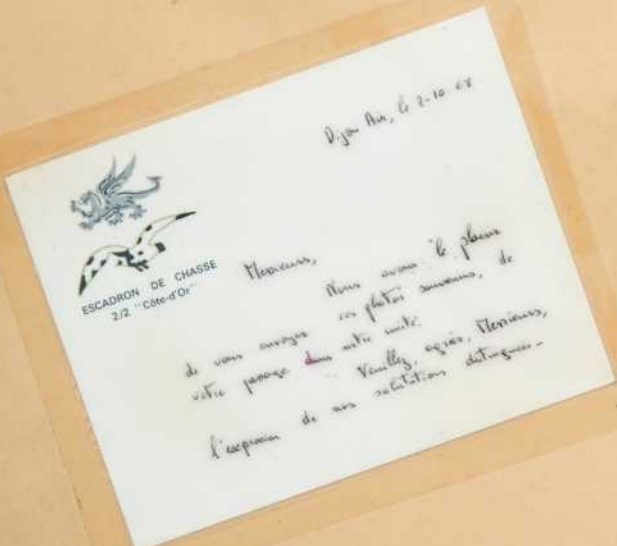 Dijon Air, le 2-10 68
ESCADRON DE CHASSE
2/2 "Côte-d'Or"
Messieurs,
Nous avons le plaisir
de vous envoyer ces photos souvenirs, de
votre passage dans notre unité.
Veuillez, agréer, Messieurs,
l'expression de nos salutations distinguées.